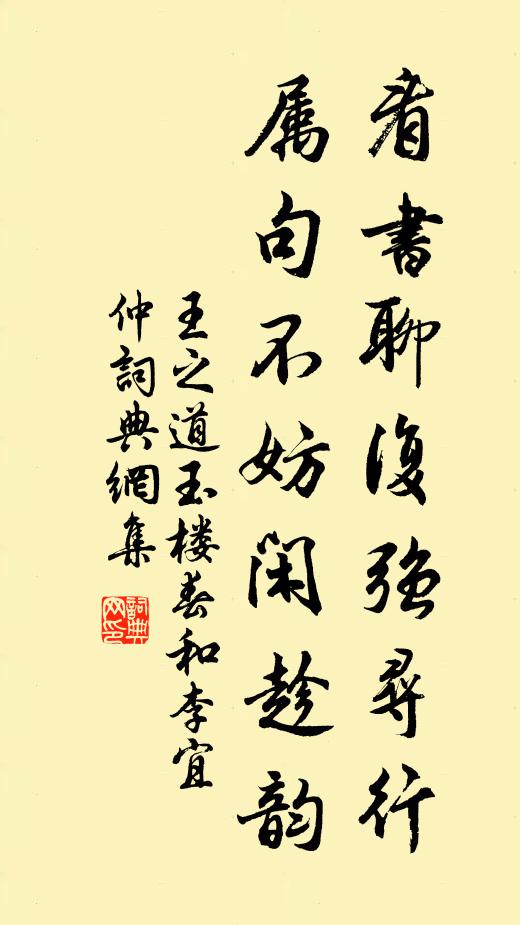 看書聊復強尋行
属句不妨閑趁韵
王之道玉楼春和李宜
仲詞典網集
詞典网印